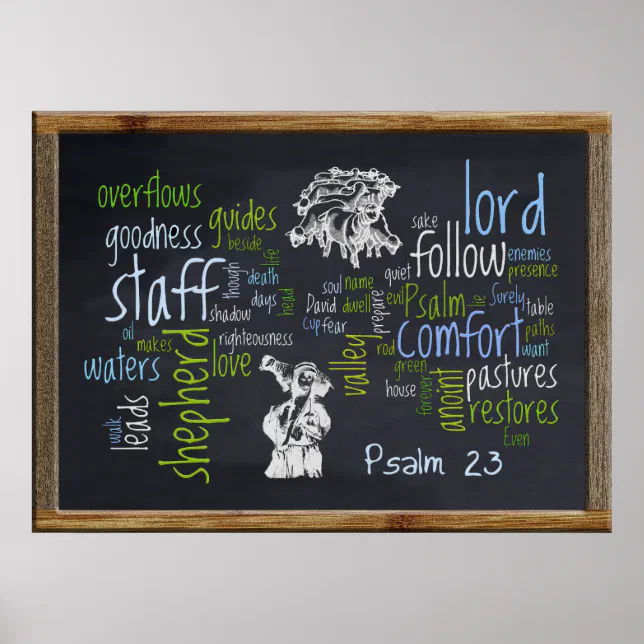 overflows
goodness
guides
beside
staff
though
life
death
days
head
shadow
oil
makes
waters
righteousness
love
shepherd
walk
leads
lord
sake
follow
enemies
presence
quiet
soul
name
David
dwell
evil
Psalm
lie
Surely
table
prepare
Cup
fear
valley
rod
comfort
paths
want
green
house
forever
anoint
pastures
restores
Even
Psalm 23